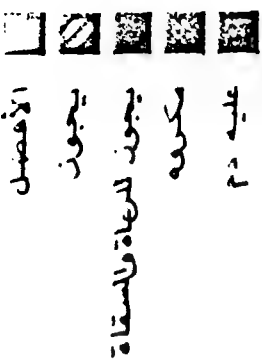 الأفضل
يجوز
يجوز للرعاة والسقاة
مكروه
عليه دم